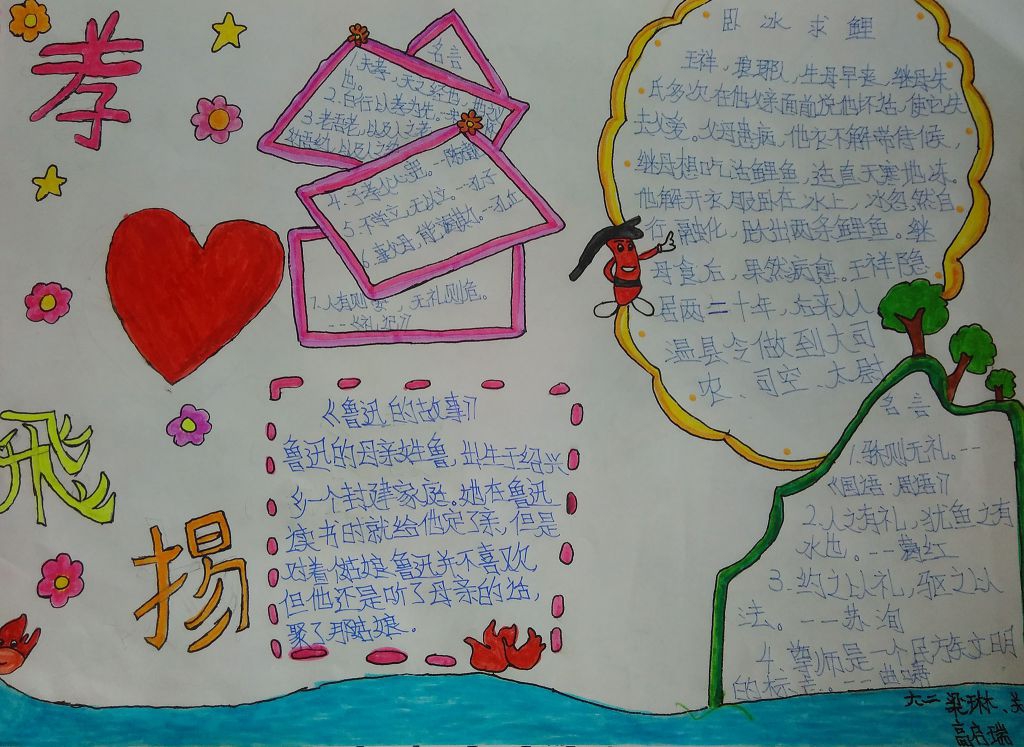 孝
飛
揚
名言
夫孝,天之经也,
也。
2.百行以孝为先。
3.老吾老,以及人之老
幼吾幼,以及人之幼
4.子孝父心宽。--陈元靓
5.不学立,无以立。--孔子
6.事父母,能竭其力。--孔丘
7.人有则安,无礼则危。
--《礼记》
《鲁迅的故事》
鲁迅的母亲姓鲁,出生于绍兴
乡一个封建家庭。她在鲁迅
读书时就给他定了亲,但是
对着姑娘鲁迅并不喜欢
但他还是听了母亲的话,
娶了那姑娘.
卧冰求鲤
王祥,琅琊人,生母早丧,继母朱
氏多次在他父亲面前说他坏话,使它失
去父爱。父母患病,他衣不解带侍候,
继母想吃活鲤鱼,适直天寒地冻。
他解开衣服卧在冰上,冰忽然自
行融化,跃出两条鲤鱼。继
母食后,果然病愈。王祥隐
居两二十年,后来从
温县令做到大司
农、司空、太尉
名言
1.骄则无礼。--
《国语·周语》
2.人之有礼,犹鱼之有
水也。--葛红
3.约之以礼,驱之以
法。---苏洵
4.尊师是一个民族文明
的标志。---曲啸
六二 梁琳、关
高启瑞